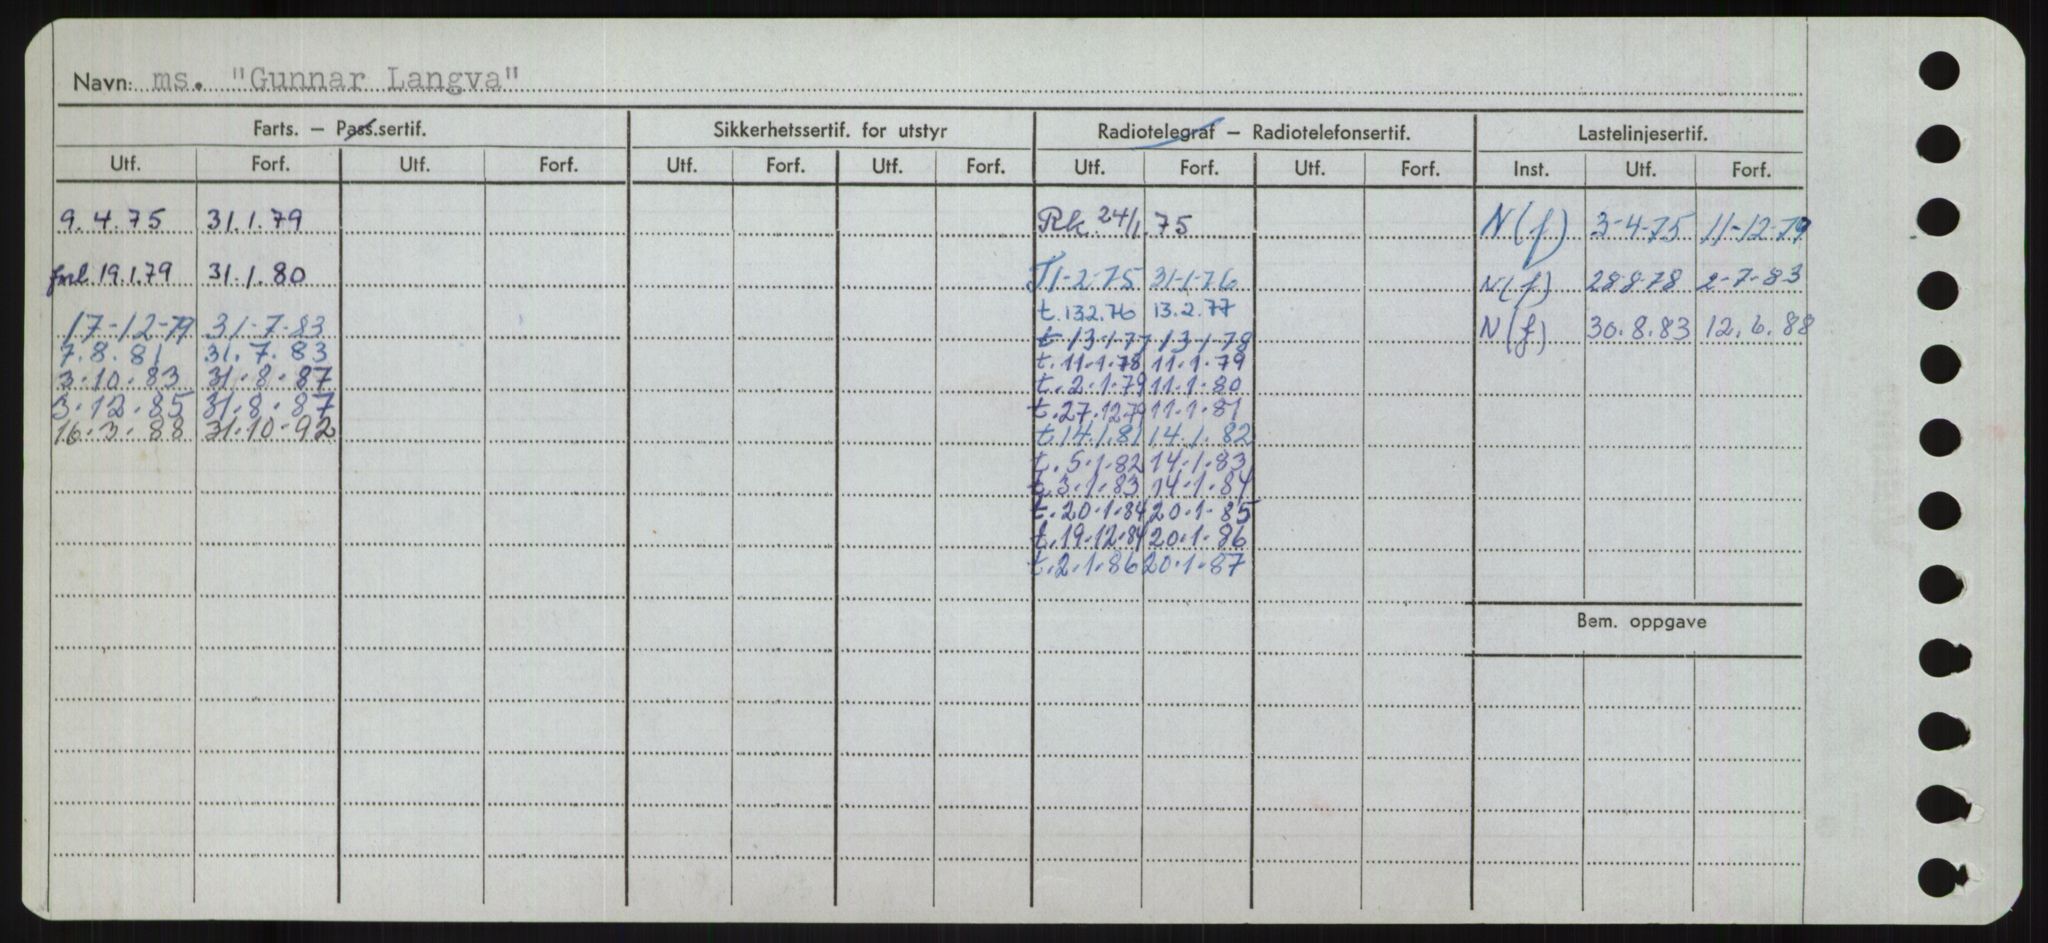 Navn: ms. "Gunnar Langva"
Farts. – Pass.sertif. Sikkerhetssertif. for utstyr Radiotelegraf – Radiotelefonsertif. Lastelinjesertif.
Utf. Forf. Utf. Forf. Utf. Forf. Utf. Forf. Utf. Forf. Utf. Forf. Inst. Utf. Forf.
9.4.75 31.1.79 Rk. 24/1.75 N(f) 3-4-75 11-12-79
forl. 19.1.79 31.1.80 T1-2-75 31-1-76 N(f) 28-8-78 2-7-83
t.13.2.76 13.2.77
17-12-79 31-7-83 t 13-1-77 13-1-78 N(f) 30.8.83 12.6.88
7.8.81 31.7.83 t.11.1.78 11.1.79
3.10.83 31.8.87 t.2.1.79 11.1.80
3.12.85 31.8.87 t.27.12.79 11.1.81
16.3.88 31.10.92 t.14.1.81 14.1.82
t.5.1.82 14.1.83
t.3.1.83 14.1.84
t.20.1.84 20.1.85
t.19.12.84 20.1.86
t.2.1.86 20.1.87
Bem. oppgave